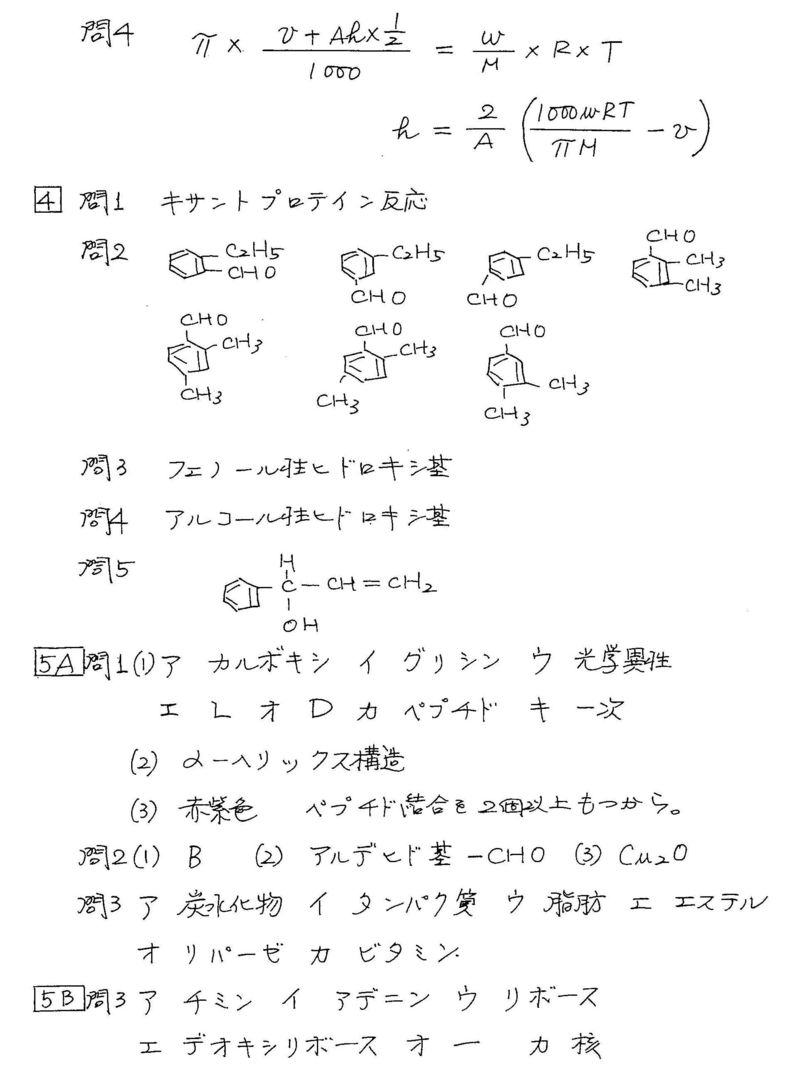 問4 π × (v + Ah × 1/2)/1000 = w/M × R × T
h = 2/A (1000wRT/πM − v)
4 問1 キサントプロテイン反応
問2 C2H5 CHO C2H5 CHO C2H5 CHO CHO CH3 CH3
CHO CH3 CH3 CHO CH3 CH3 CHO CH3 CH3
問3 フェノール性ヒドロキシ基
問4 アルコール性ヒドロキシ基
問5 H
C − CH = CH2
OH
5A 問1(1) ア カルボキシ イ グリシン ウ 光学異性
エ L オ D カ ペプチド キ 一次
(2) α−ヘリックス構造
(3) 赤紫色 ペプチド結合を2個以上もつから。
問2(1) B (2) アルデヒド基 −CHO (3) Cu2O
問3 ア 炭水化物 イ タンパク質 ウ 脂肪 エ エステル
オ リパーゼ カ ビタミン
5B 問3 ア チミン イ アデニン ウ リボース
エ デオキシリボース オ 一 カ 核